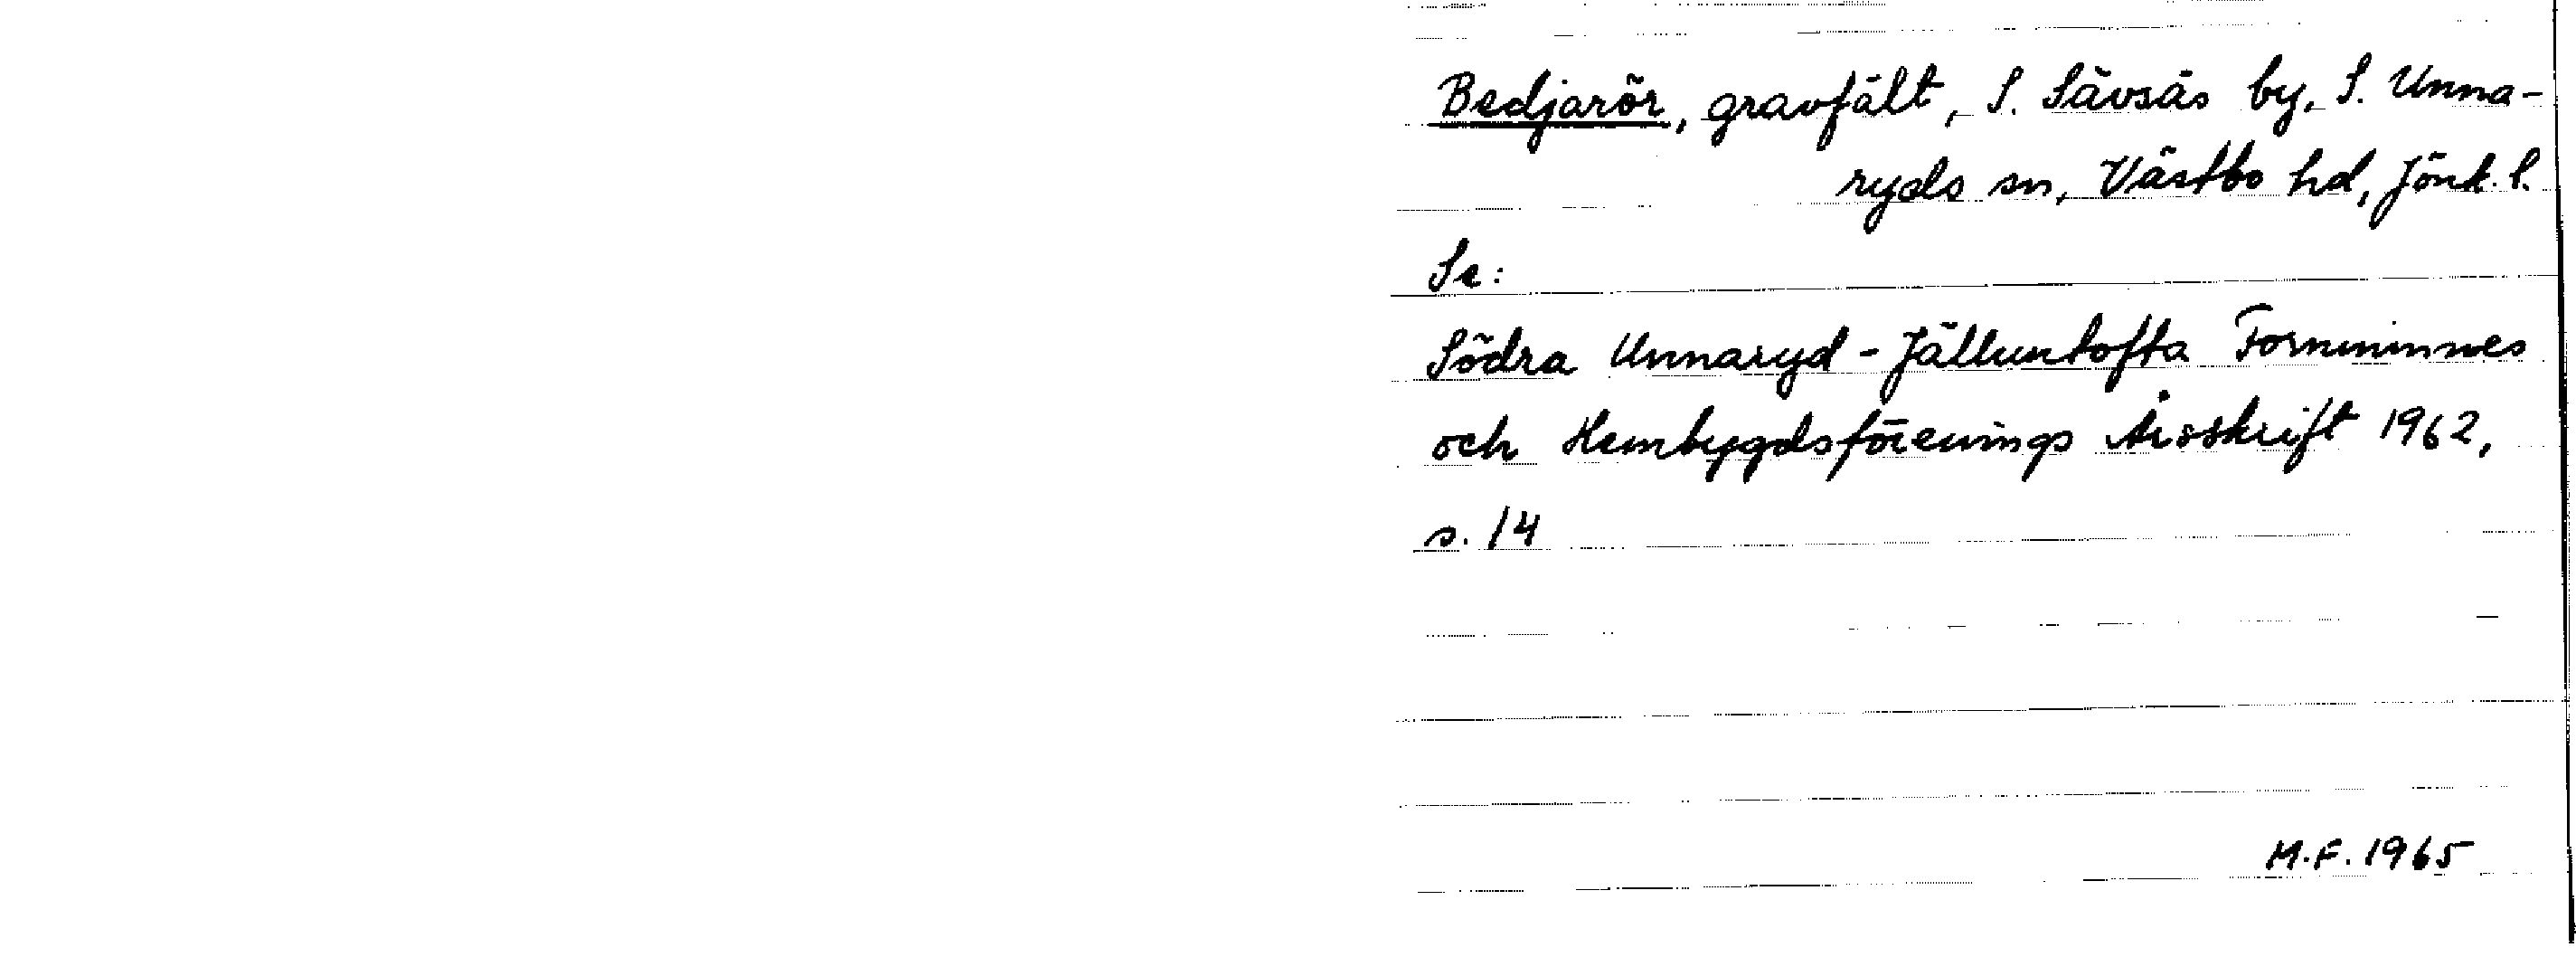 Bedjarör, gravfält, S. Sävsås by, S. Unna-
ryds sn, Västbo hd, Jönk. l.
Se:
Södra Unnaryd - Jälluntofta Fornminnes
och Hembygdsförenings Årsskrift 1962,
s. 14
M.F. 1965